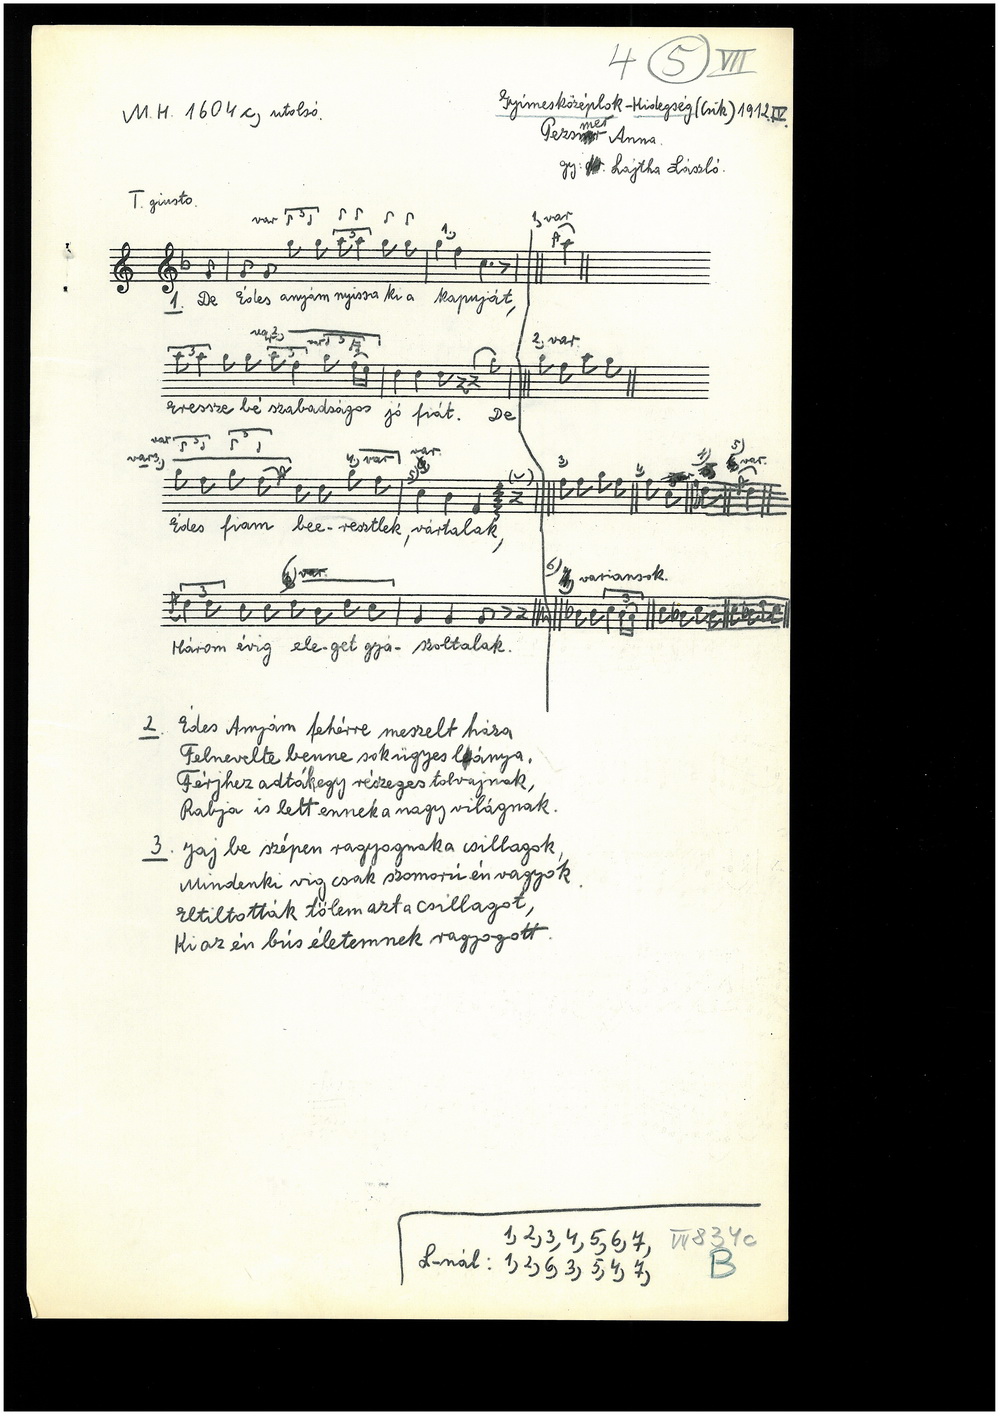 4 (5) VII
M.H. 1604 c, utolsó.
Gyimesközéplok-Hidegség (Csík) 1912.IV.
Pezsmer Anna.
gy: Lajtha László.
T. giusto.
var 3 3 1, 1, var
1. De Édes anyám nyissa ki a kapuját,
3 var 2, 3 3 2, var.
Eressze bé szabadságos jó fiát. De
var 3 3 var 3, 4, var var 5, 3, 4, 5, var.
Édes fiam bee-resztlek, vártalak,
3 6, variansok. 3
Három évig ele-get gyá- szoltalak.
2. Édes Anyám fehérre meszelt háza
Felnevelte benne sok ügyes lánya.
Férjhez adták egy részeges tolvajnak,
Rabja is lett ennek a nagy világnak.
3. Jaj be szépen ragyognak a csillagok,
Mindenki vig csak szomorú én vagyok.
Eltiltották tőlem azt a csillagot,
Ki az én bús életemnek ragyogott.
1, 2, 3, 4, 5, 6, 7, VI 834c
L-nál: 1, 2, 6, 3, 5, 4, 7, B